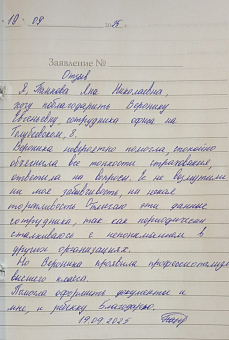 10 09 2025
Заявление №
Отзыв
Я, Панкова Яна Николаевна,
хочу поблагодарить Веронику
Евгеньевну сотрудника офиса на
8.
Вероника невероятно помогла, спокойно
объяснила все тонкости страхования,
ответила на вопросы. Ее не возмутили
ни моя ни
эти данные
сотрудника, так как периодически
сталкиваюсь с непониманием в
других организациях.
Но Вероника проявила профессионализм
высшего класса.
Помогла оформить документы и
мне, и ребенку. Благодарю.
19.09.2025